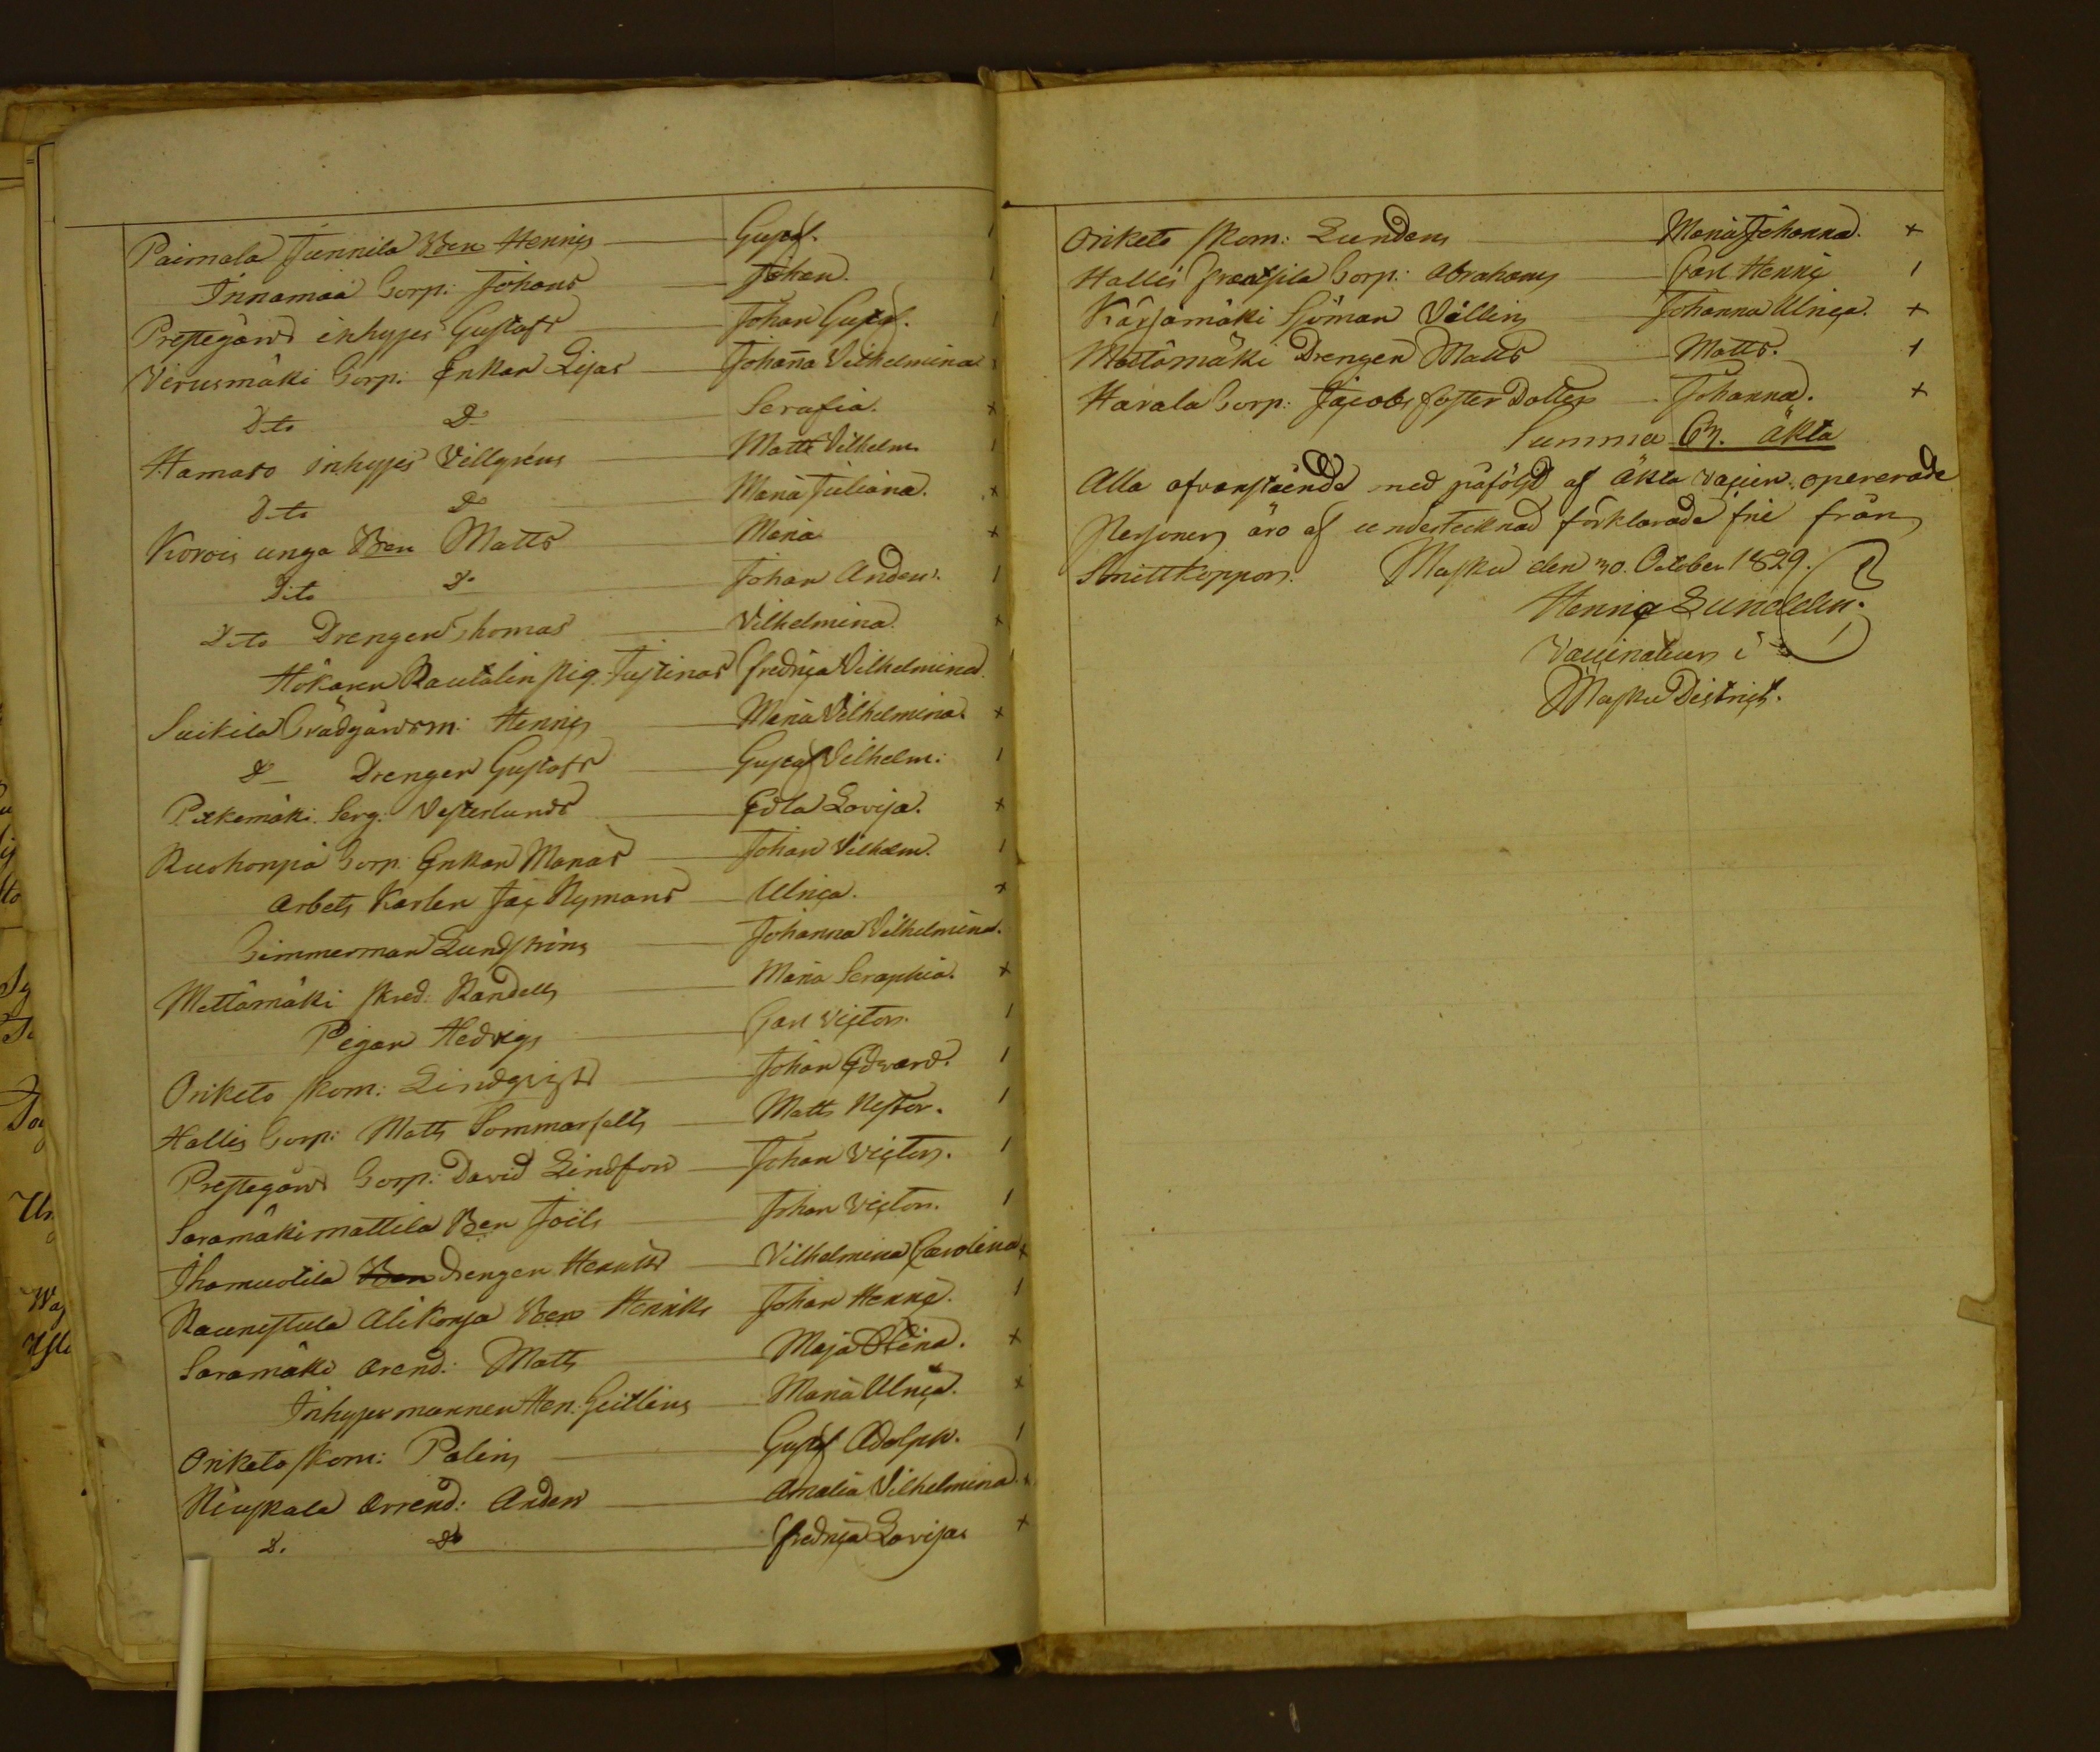 Paimala Junnila Bon Henrics Gustaf. 1
Innamaa Torp: Johans Johan. 1
Prestegårds inhyses Gustafs Johan Gustaf. 1
Virusmäki Torp: Enkan Lisas Johanna Vilhelmina
Dito Do Serafia. x
Hamaro inhyses Villgréns Matts Vilhelm. 1
Dito Do Maria Juliana. x
Korois unga Bon Matts Maria x
Dito Do Johan Anders. 1
Dito Drengen Thomas Vilhelmina. x
Hökaren Rautalin pig. Justinas Fredrica Vilhelmina.
Suikila Trädgårdsm: Henrics Maria Vilhelmina x
Do Drengen Gustafs Gustaf Vilhelm: 1
Pitkemäki Serg: Vesterlunds Edla Lovisa. x
Ruohonpä Torp. Enkan Marias Johan Vilhelm. 1
Arbets Karlen Jac Nymans Ulrica. x
Timmerman Lundströms Johanna Vilhelmina.
Mettämäki skred: Randells Maria Seraphia. x
Pigan Hedvigs Carl Victor. 1
Oriketo skom: Lindqvists Johan Edvard. 1
Hallis Torp: Matts Sommarfelts Matts Nestor. 1
Prestegårds Torp: David Lindfors Johan Victor. 1
Saramäki mattila Bon Joels Johan Victor. 1
Bon Drengen Henriks Vilhelmina Carolina x
Raunistula Alikorja Bon Henriks Johan Henric. 1
Saramäki arend: Matts Maja Stina. x
Inhyses mannen Hen: Geitlins Maria Ulrica. x
Oriketo skom: Palins Gustaf Adolph. 1
Niuskala arrend: Anders Amalia Vilhelmina. x
D. Do Fredrica Lovisa x
Oriketo skom: Lundens Maria Johanna. x
Hallis Torp: Abrahams Carl Henric 1
Kärsämäki Sjöman Vällins Johanna Ulrica. x
Mettämäki Drengen Matts Matts. 1
Havala Torp: Jacobs foster Dotter Johanna. x
Summa 63. äkta
Alla ofvanstående med påföljd af äkta vaccin opererade
Personer äro af undertecknad förklarade frie från
Smittkoppor. Masku den 30. October 1829.
Henric Lundelin.
Vaccinateur i
Masku District.